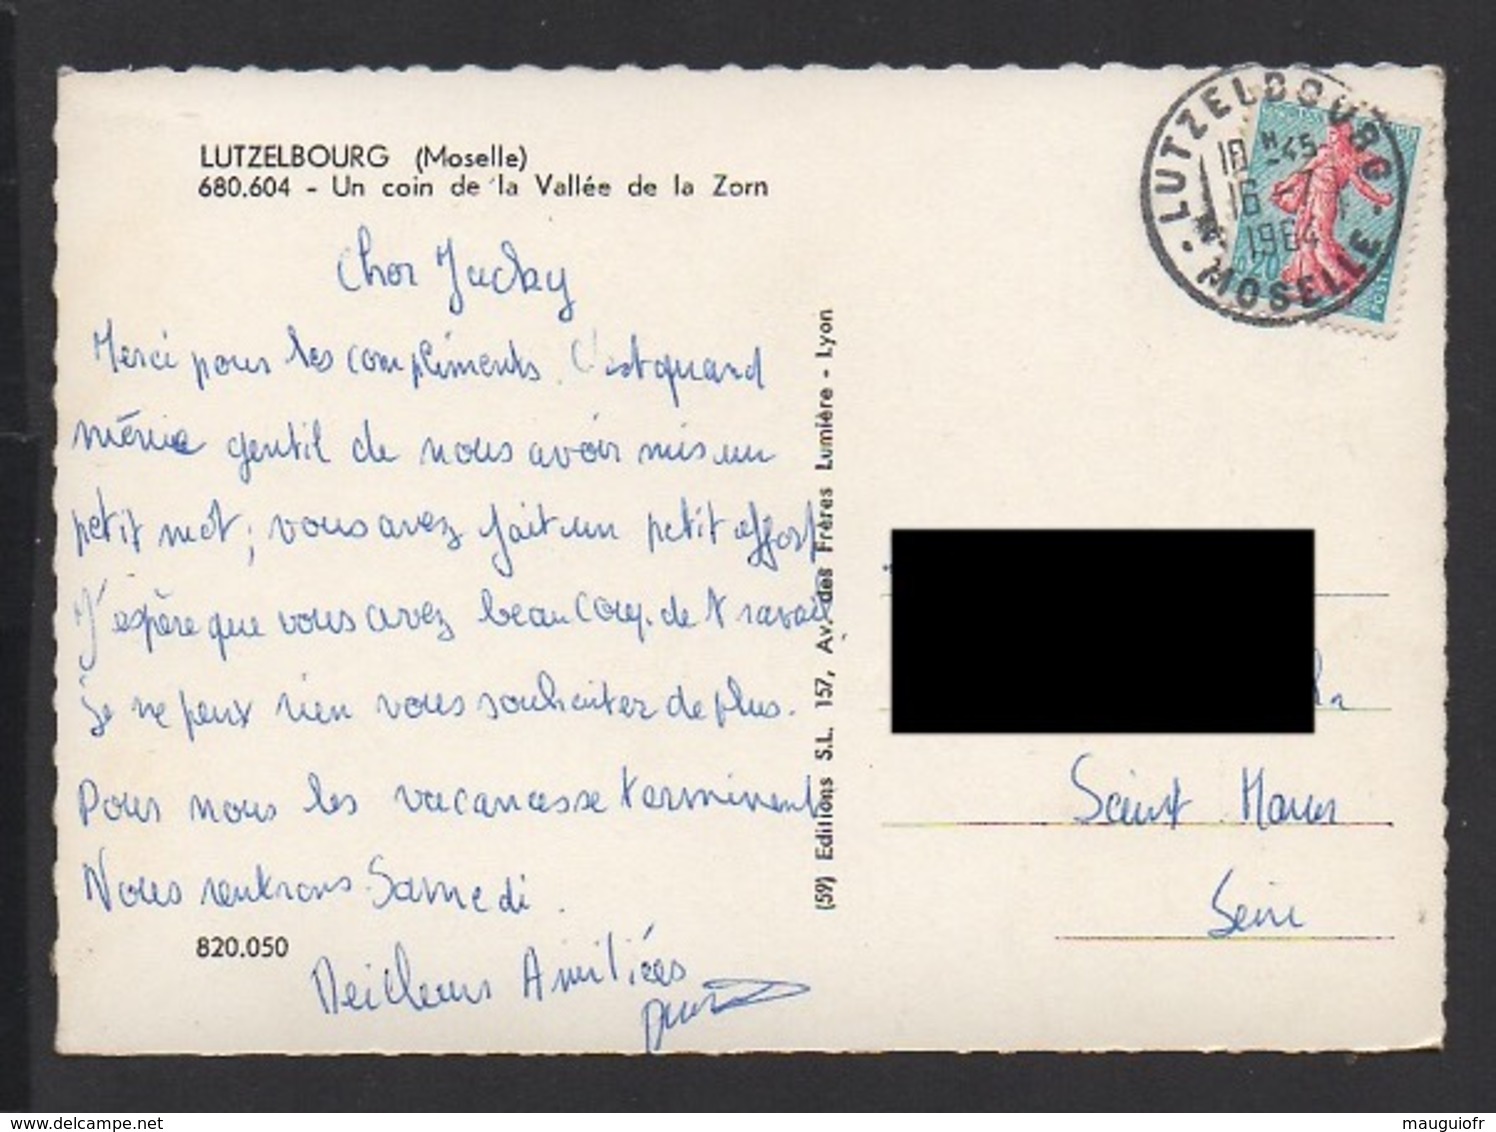 LUTZELBOURG (Moselle)
680.604 - Un coin de la Vallée de la Zorn
Cher Jacky
Merci pour les compliments. C'est quand
même gentil de nous avoir mis un
petit mot, vous avez fait un petit effort
J'espère que vous avez beaucoup de travail
je ne peux rien vous souhaiter de plus.
Pour nous les vacances se terminent
Nous rentrons Samedi.
820.050
Meilleurs Amitiées
(59) Editions S.L. 157, Av. des Frères Lumière - Lyon
LUTZELBOURG
18 H 45
16 - 7
1964
MOSELLE
0,20
POSTES
Saint Maur
Seine
www.delcampe.net
mauguiofr